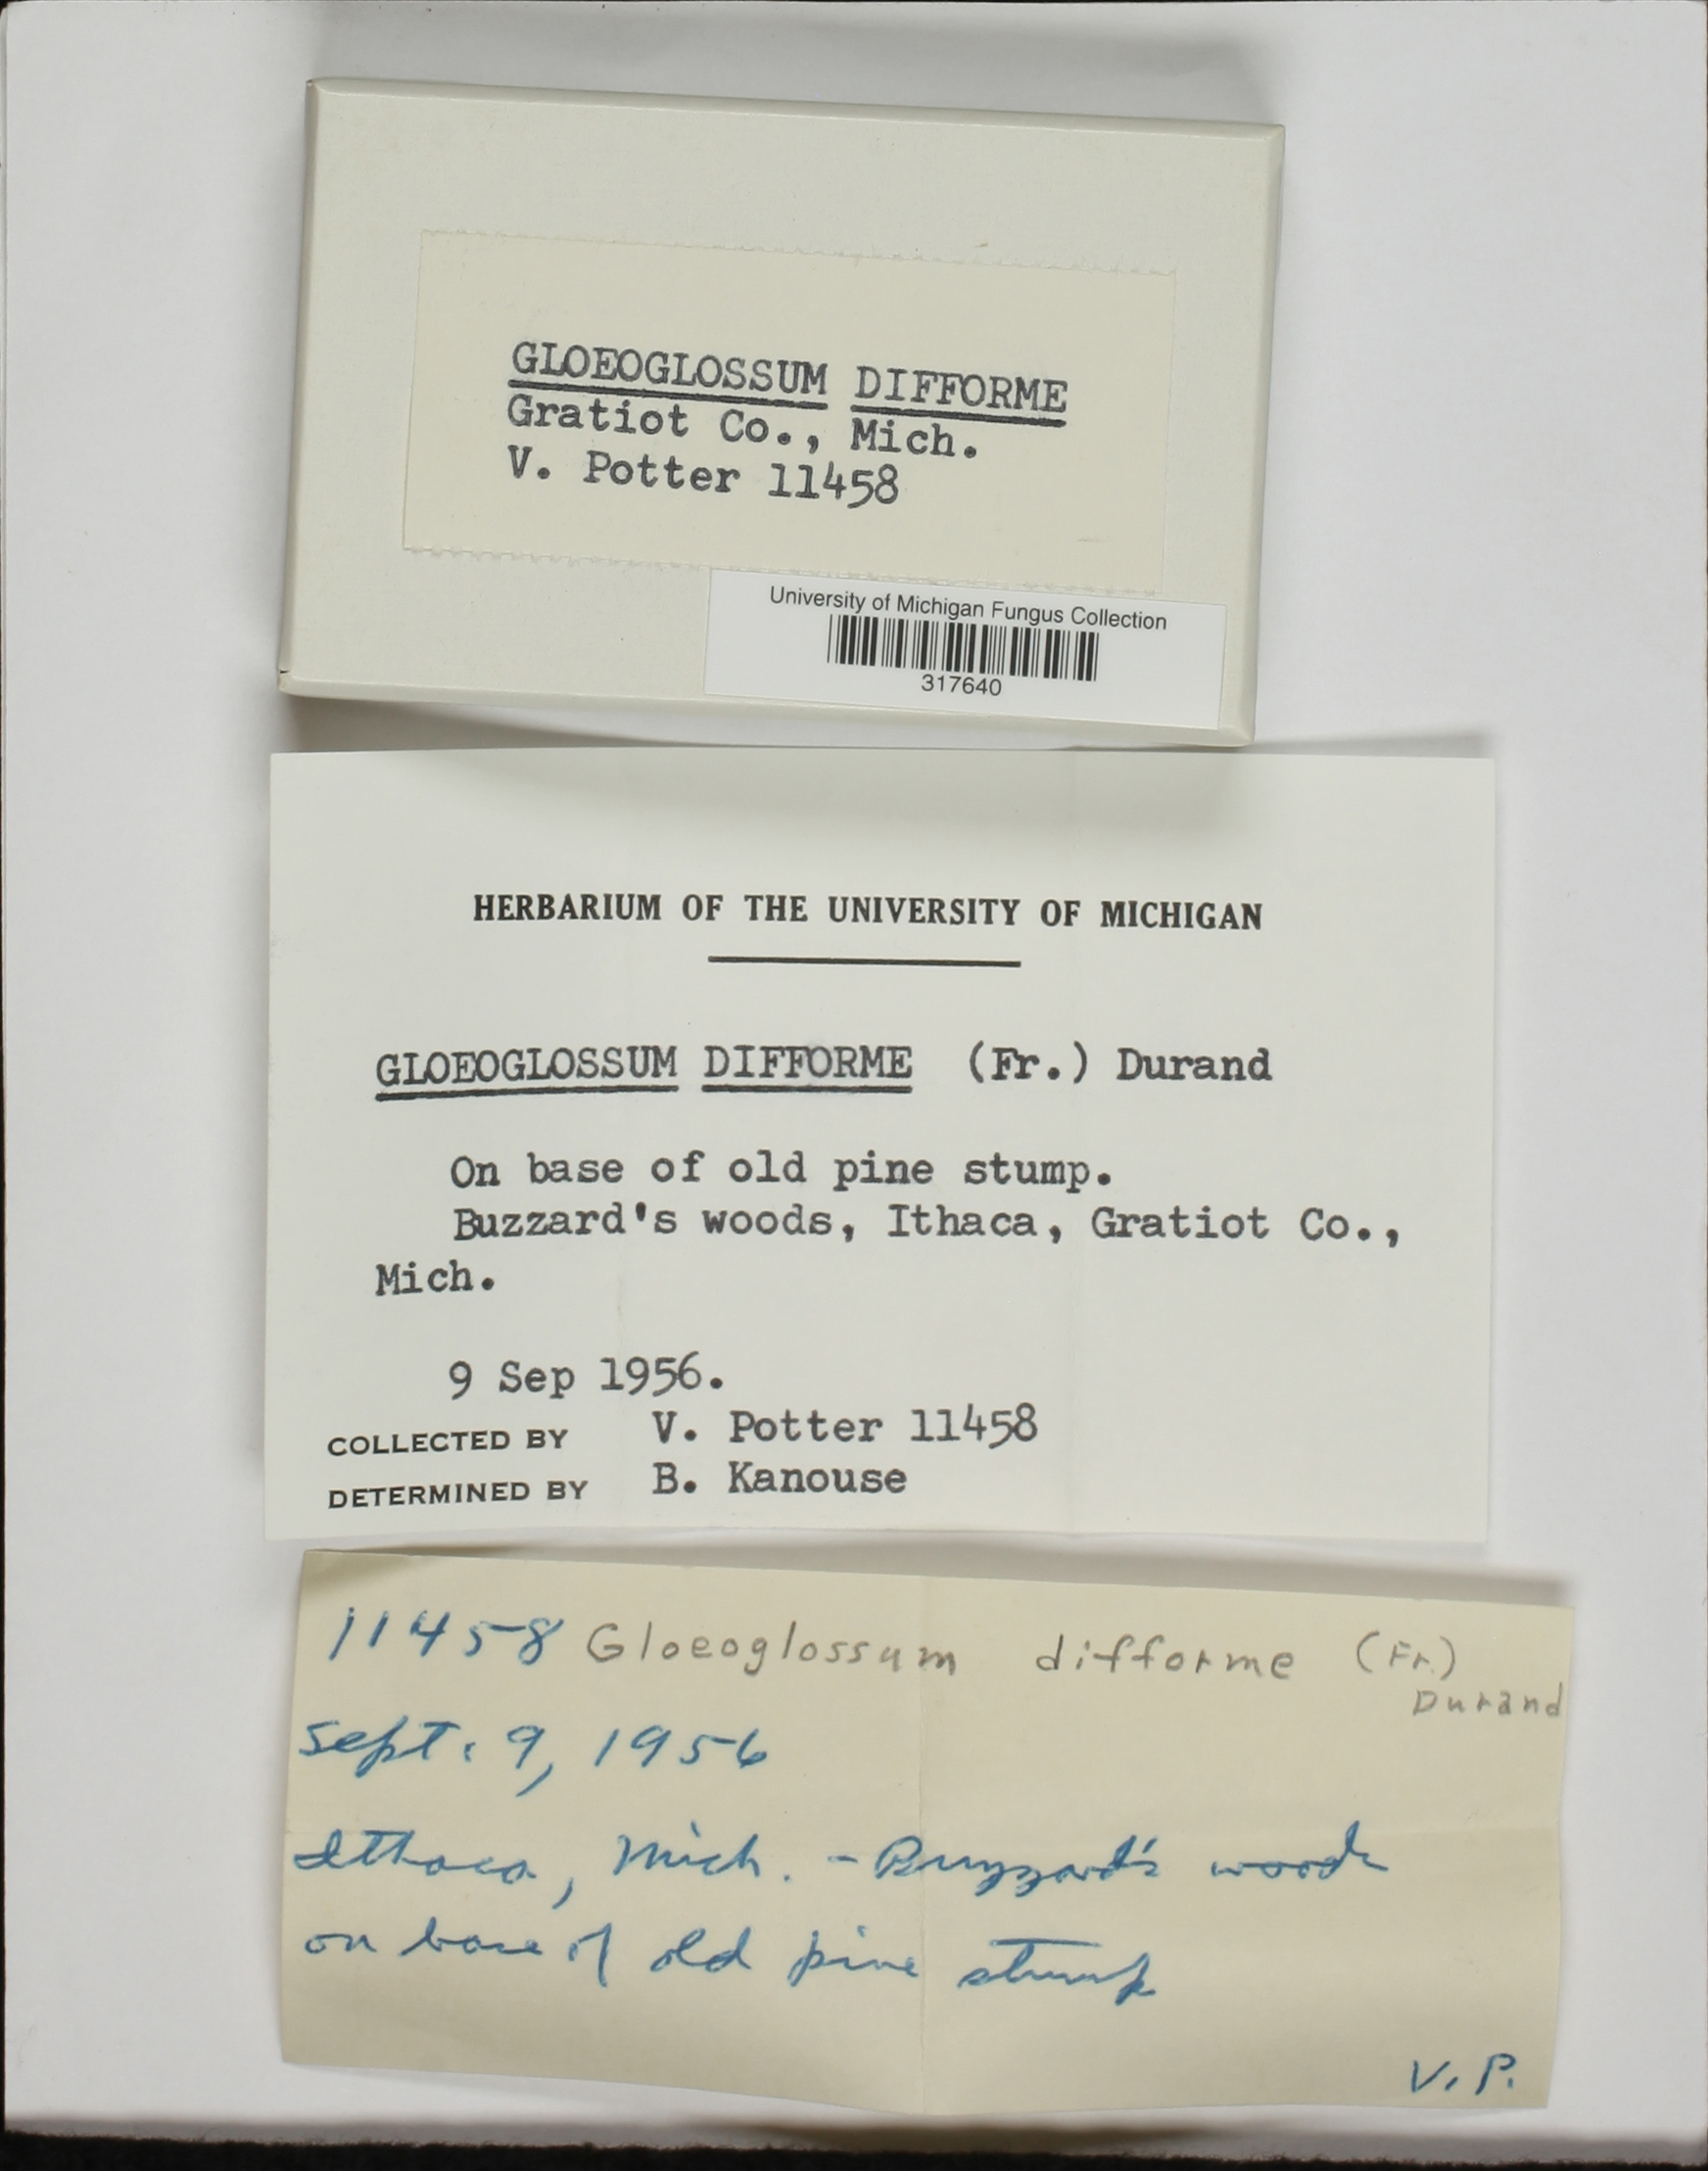 GLOEOGLOSSUM DIFFORME
Gratiot Co., Mich.
V. Potter 11458
University of Michigan Fungus Collection
317640
HERBARIUM OF THE UNIVERSITY OF MICHIGAN
GLOEOGLOSSUM DIFFORME (Fr.) Durand
On base of old pine stump.
Buzzard's woods, Ithaca, Gratiot Co.,
Mich.
9 Sep 1956.
COLLECTED BY V. Potter 11458
DETERMINED BY B. Kanouse
11458 Gloeoglossum difforme (Fr.)
Durand
Sept. 9, 1956
Ithaca, Mich. - Buzzard's woods
on base of old pine stump
V. P.